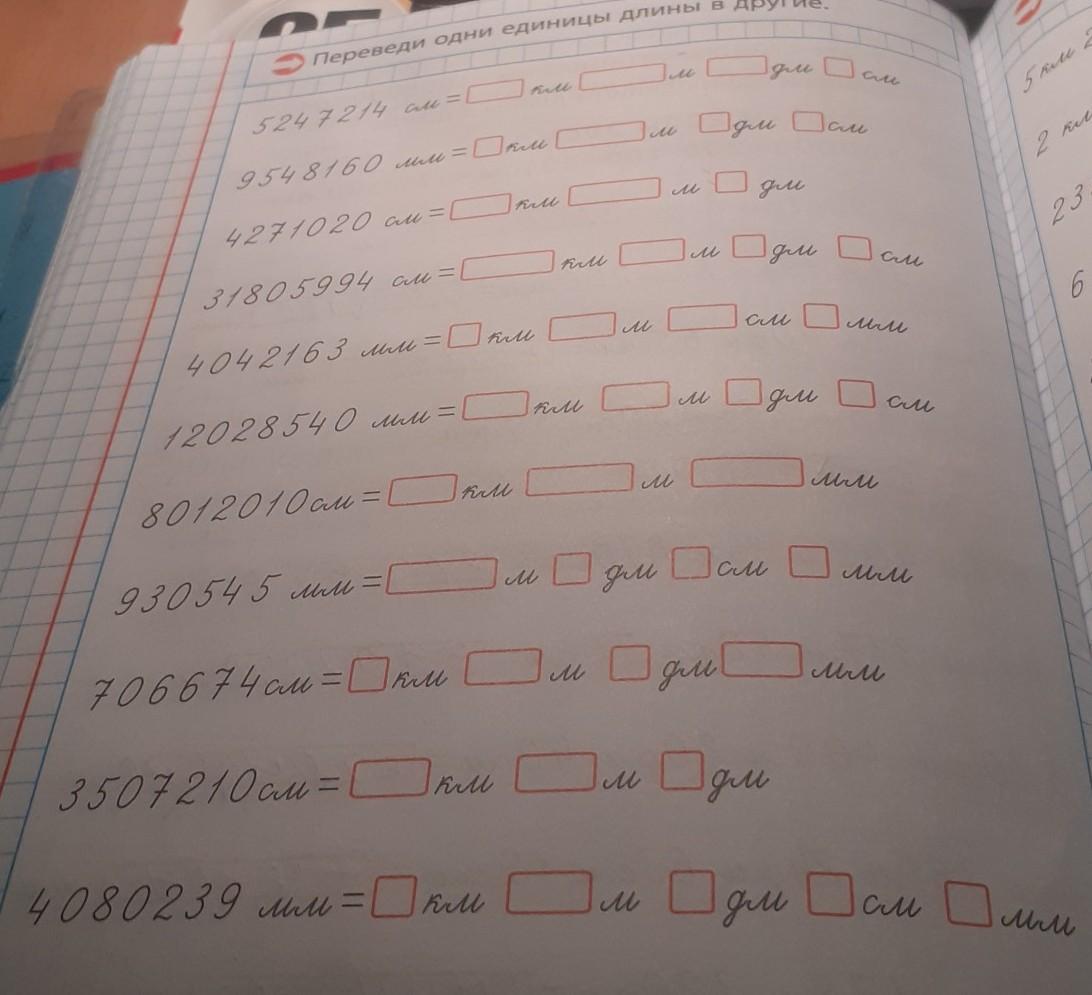 Переведи одни единицы длины в другие.
5247214 см = км м дм см
9548160 мм = км м дм см
4271020 см = км м дм
31805994 см = км м дм см
4042163 мм = км м см мм
12028540 мм = км м дм см
8012010 см = км м мм
930545 мм = м дм см мм
706674 см = км м дм мм
3507210 см = км м дм
4080239 мм = км м дм см мм
5 км 2
2 км
23
6